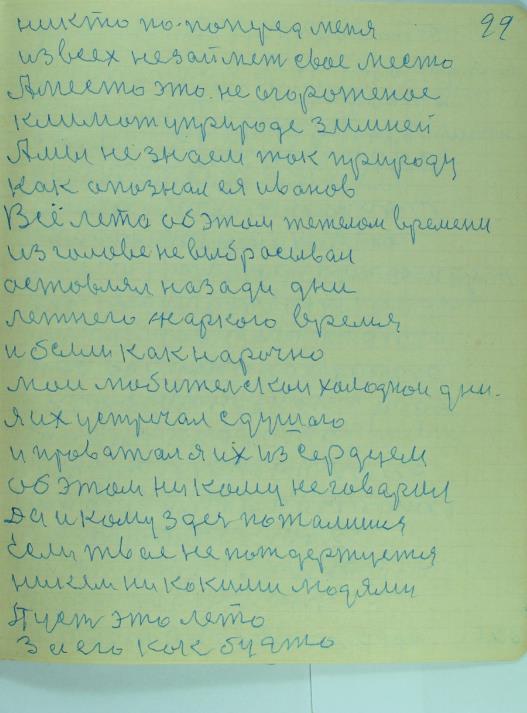 никто по-поперед меня 99
из всех незаймет свое место
Аместо это не огороженое
климот уприроде зимней
Амы незнаем ток природу
как опознал ея иванов
Всё лето об этом тежелом времени
из голове невыбрасывал
оставлял назади дни
летнего жаркого время
и были как нарочно
мои любительскои холоднои дни.
я их устречал сдушою
и проватал я их из сердцем
об этом никому неговарил
Да и кому здеч пожалишя
Если твое не пождержуется
никем ни кокими людями
Пуст это лето
З его как будто